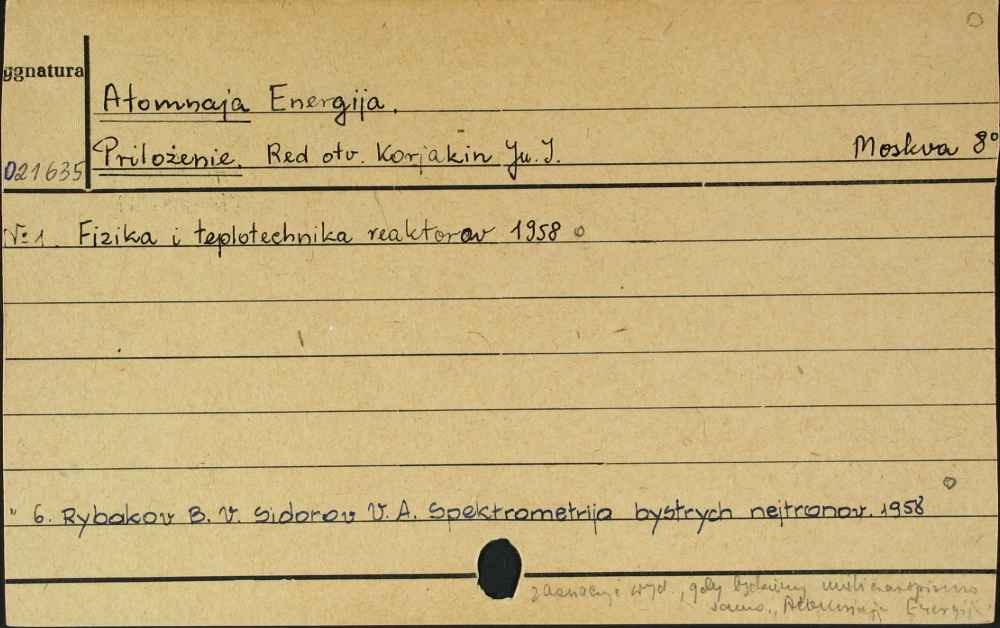 ygnatura
Atomnaja Energija.
021635 Priloženie. Red otv. Korjakin Ju. I. Moskva 8°
№ 1. Fizika i teplotechnika reaktorov 1958
" 6. Rybakov B. V. Sidorov V. A. Spektrometrija bystrych nejtronov. 1958
wyd, gdy będziemy mieli czasopismo
samo „Atomnaja Energija"